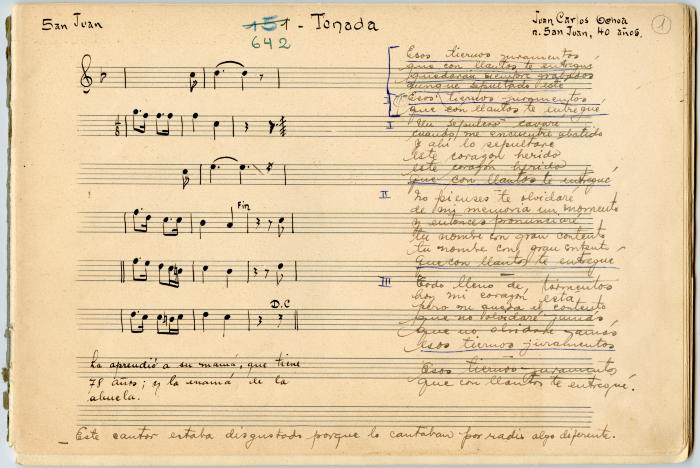 San Juan
151 - Tonada
642
Juan Carlos Ochoa
n. San Juan, 40 años.
1
Esos tiernos juramentos
que con llantos te entregué
quedarán siempre grabados
aunque sepultado esté
Esos tiernos juramentos
que con llantos te entregué
I
I
Un sepulcro cavaré
cuando me encuentre abatido
y ahí lo sepultaré
este corazón herido
este corazón herido
que con llantos te entregué
II
No pienses te olvidaré
de mi memoria un momento
y entonces pronunciaré
tu nombre con gran contento
tu nombre con gran contento
que con llantos te entregué
III
Todo lleno de tormentos
hoy mi corazón está
pero me queda el contento
que no olvidaré jamás
que no olvidaré jamás
esos tiernos juramentos
Esos tiernos juramentos
que con llantos te entregué.
Fin
D.C
La aprendió a su mamá, que tiene
78 años; y la enamá de la
abuela.
_ Este cantor estaba disgustado porque lo cantaban por radio algo diferente.